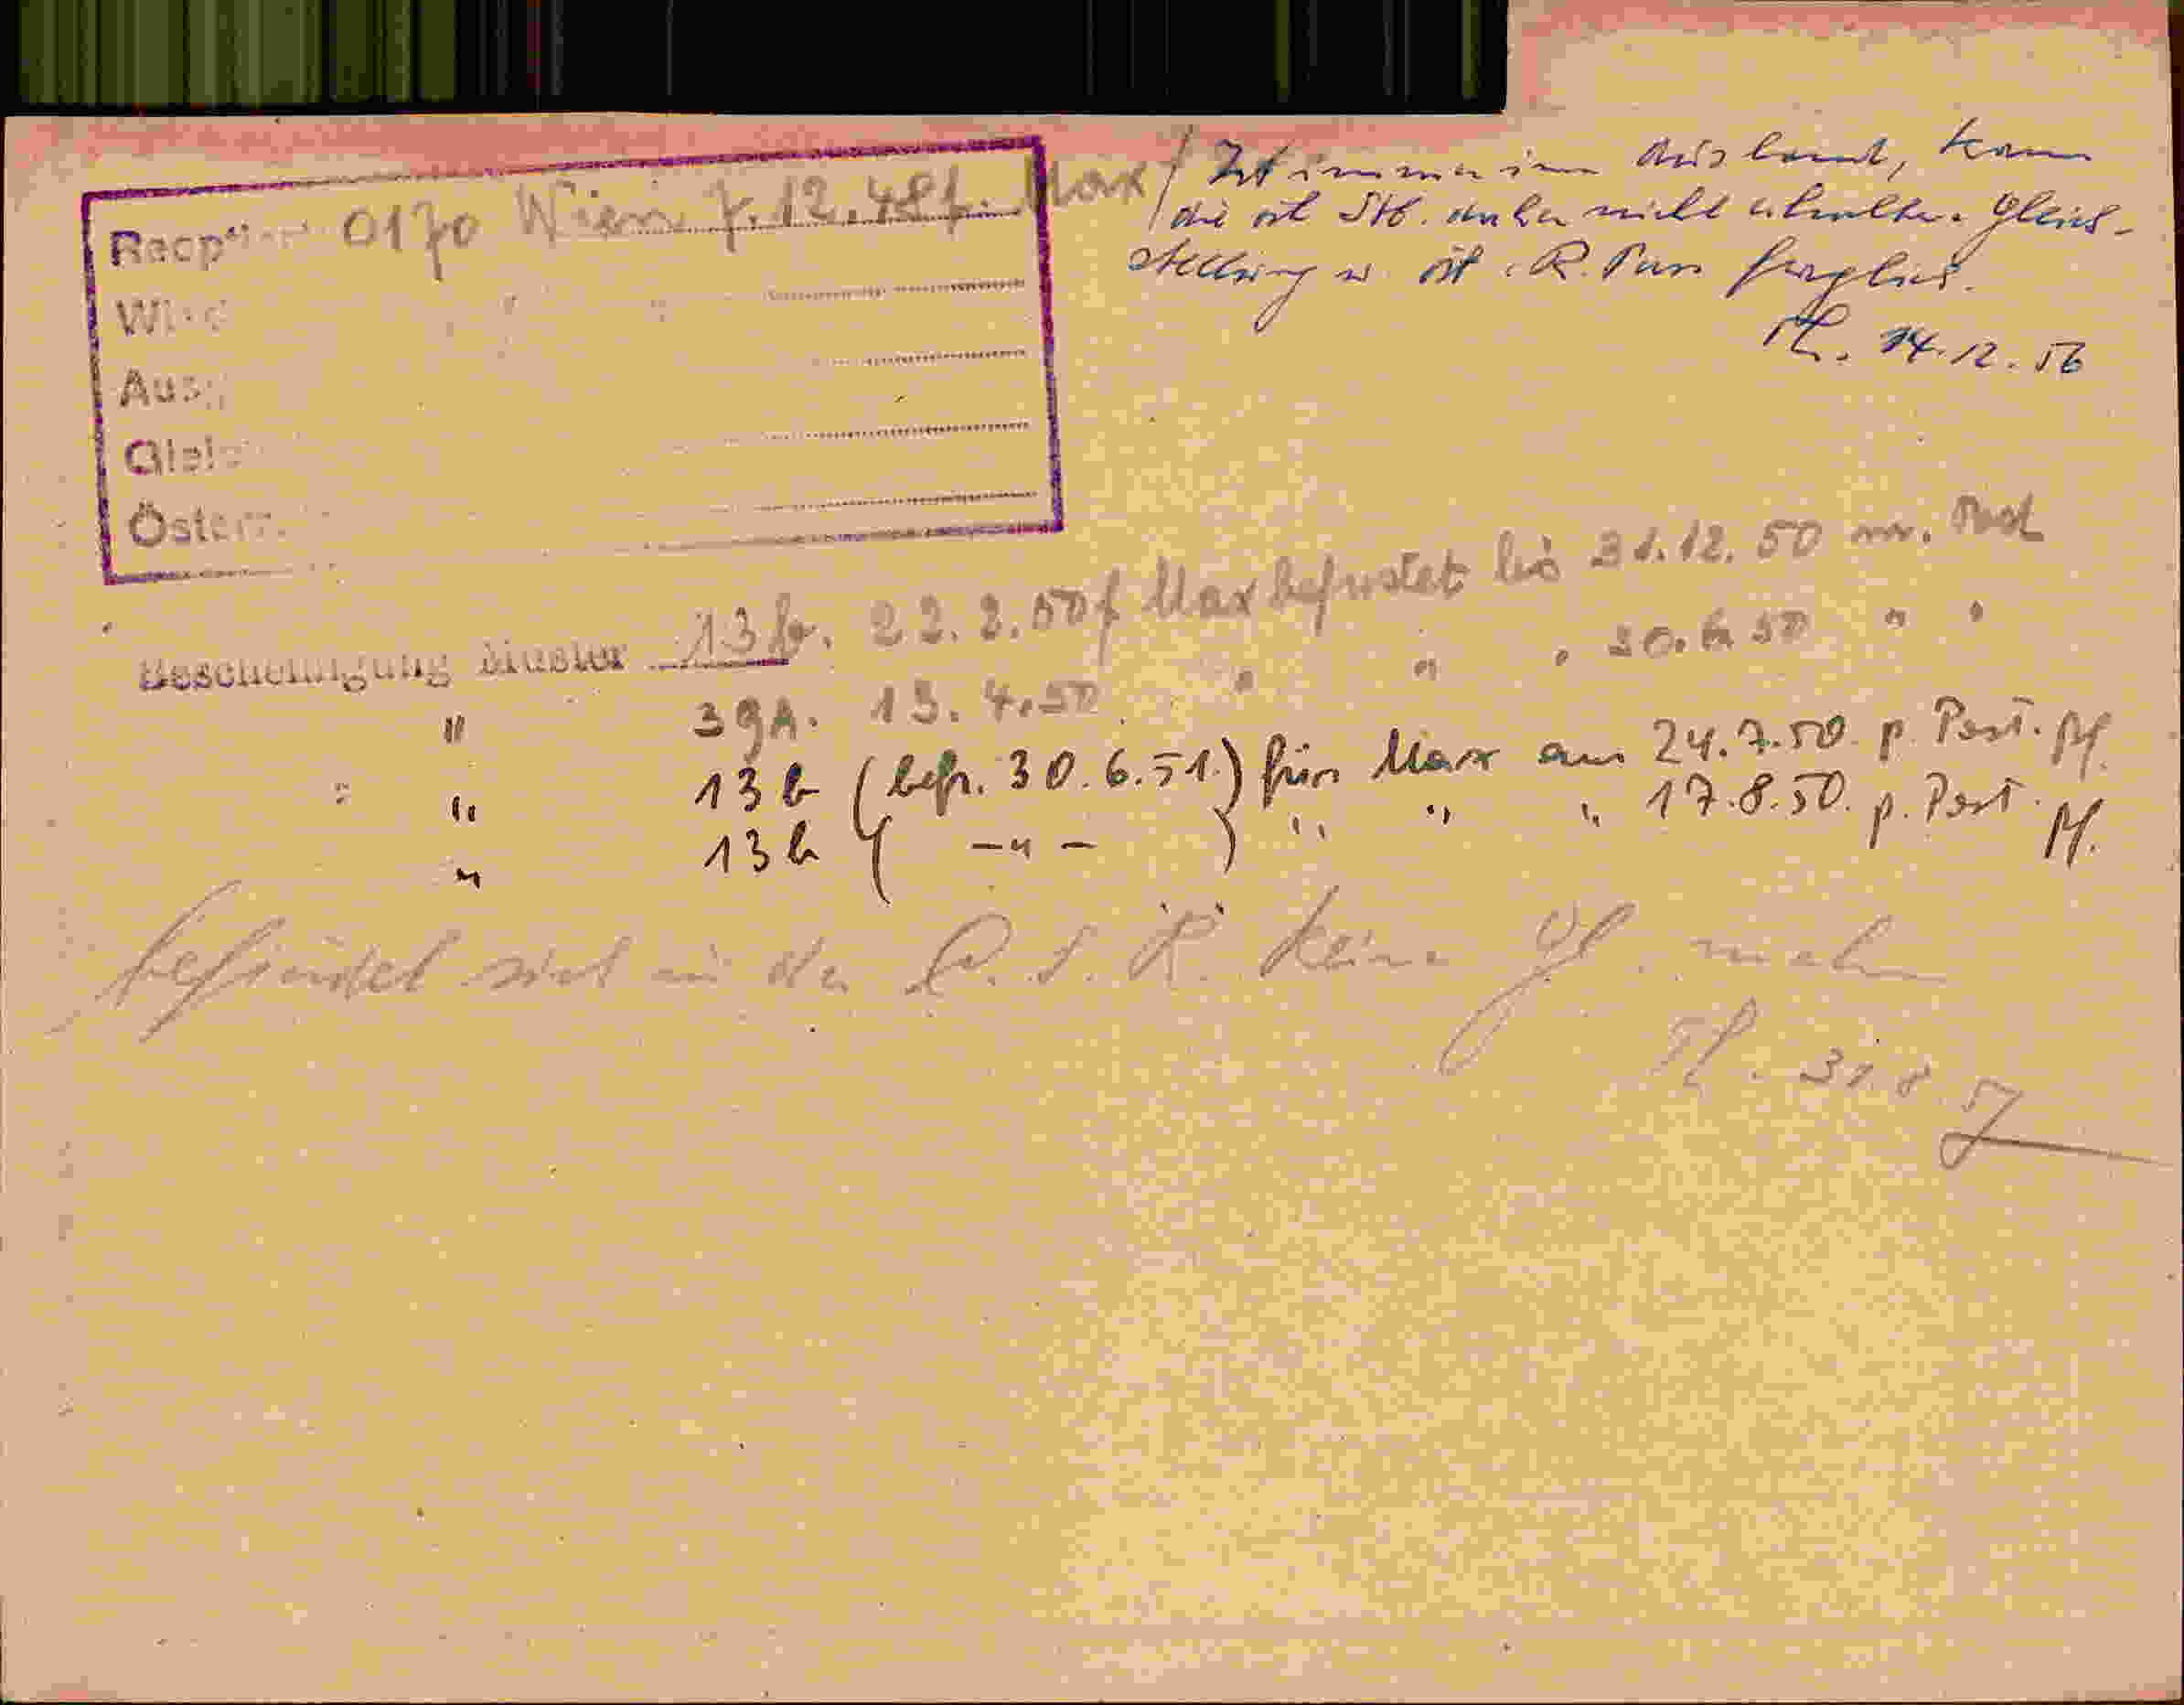 0170 Wien 7.12.48 f. Max
Österr.
Ist immer im Ausland, kann
die öst. Stb. daher nicht erhalten. Gleich-
stellung öst. R. Pass fraglich.
14.12.56
Bescheinigung Muster 13 b. 22.2.50 f Max befristet bis 31.12.50 Post
" 39A. 13.4.50 " " " 30.6.50 " "
" 13 b (befr. 30.6.51.) für Max am 24.7.50. p. Post. Pf.
" 13 b ( -"- ) " " " 17.8.50. p. Post. Pf.
befindet sich in der Č.S.R. keine mehr
31.8.57